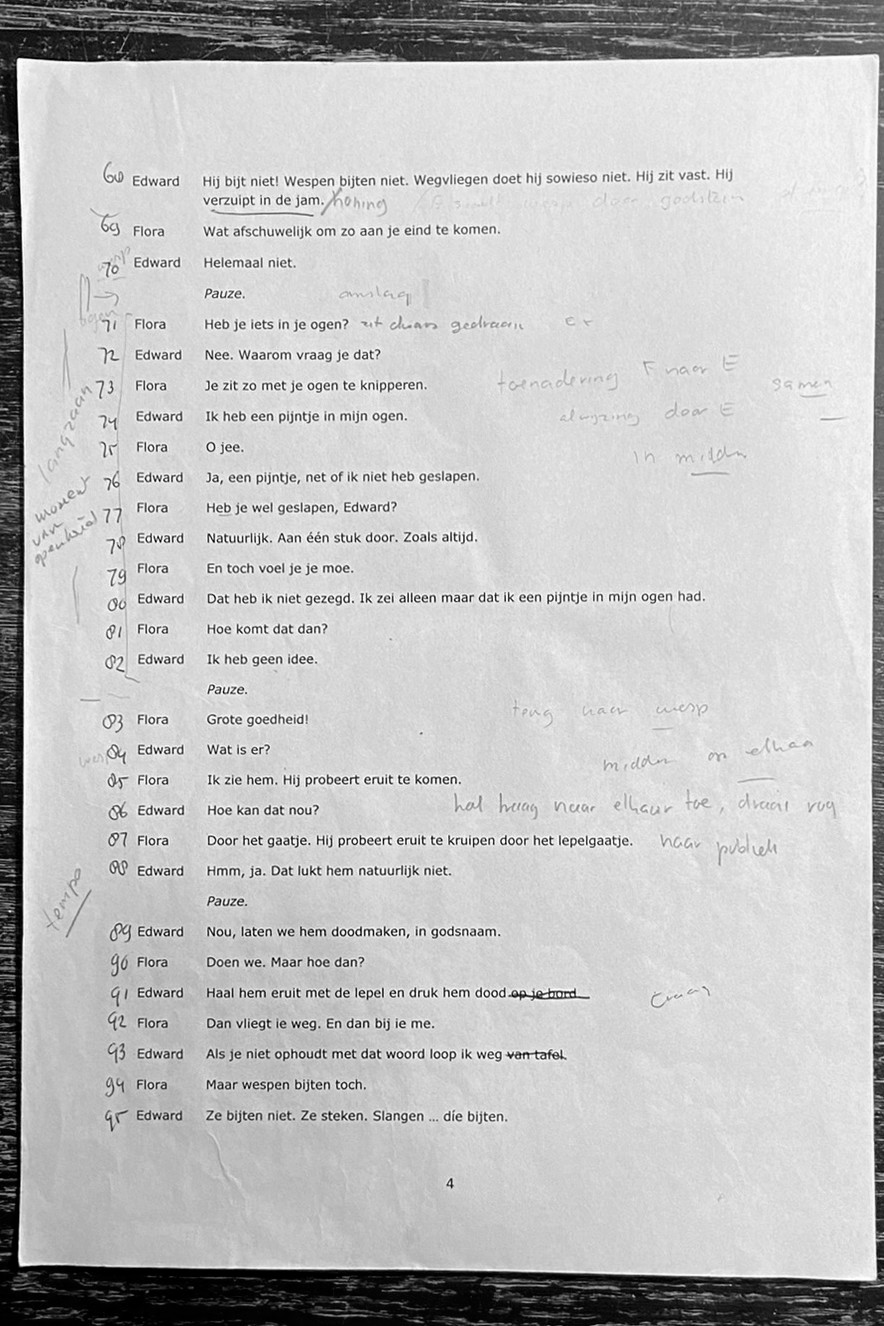 68 Edward Hij bijt niet! Wespen bijten niet. Wegvliegen doet hij sowieso niet. Hij zit vast. Hij
verzuipt in de jam. /honing door
69 Flora Wat afschuwelijk om zo aan je eind te komen.
70 Edward Helemaal niet.
Pauze.
71 Flora Heb je iets in je ogen?
72 Edward Nee. Waarom vraag je dat?
73 Flora Je zit zo met je ogen te knipperen. toenadering F naar E samen
74 Edward Ik heb een pijntje in mijn ogen. door E
langzaam
75 Flora O jee. in midden
76 Edward Ja, een pijntje, net of ik niet heb geslapen.
moment van openheid
77 Flora Heb je wel geslapen, Edward?
78 Edward Natuurlijk. Aan één stuk door. Zoals altijd.
79 Flora En toch voel je je moe.
80 Edward Dat heb ik niet gezegd. Ik zei alleen maar dat ik een pijntje in mijn ogen had.
81 Flora Hoe komt dat dan?
82 Edward Ik heb geen idee.
Pauze.
83 Flora Grote goedheid! terug naar wesp
84 Edward Wat is er? midden
85 Flora Ik zie hem. Hij probeert eruit te komen.
86 Edward Hoe kan dat nou? naar elkaar toe, draai rug
87 Flora Door het gaatje. Hij probeert eruit te kruipen door het lepelgaatje. naar publiek
88 Edward Hmm, ja. Dat lukt hem natuurlijk niet.
Pauze.
tempo
89 Edward Nou, laten we hem doodmaken, in godsnaam.
90 Flora Doen we. Maar hoe dan?
91 Edward Haal hem eruit met de lepel en druk hem dood op je bord.
92 Flora Dan vliegt ie weg. En dan bij ie me.
93 Edward Als je niet ophoudt met dat woord loop ik weg van tafel.
94 Flora Maar wespen bijten toch.
95 Edward Ze bijten niet. Ze steken. Slangen ... díe bijten.
4